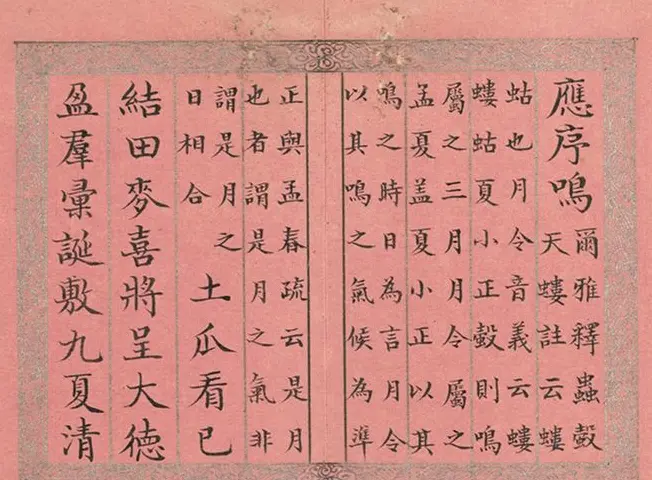 應序鳴爾雅釋蟲螜
天螻註云螻
蛄也月令音義云螻
螻蛄夏小正螜則鳴
屬之三月月令屬之
孟夏盖夏小正以其
鳴之時日為言月令
以其鳴之氣候為準
正與孟春疏云是月
也者謂是月之氣非
謂是月之
日相合
土瓜看已
結田麥喜將呈大德
盈羣彙誕敷九夏清